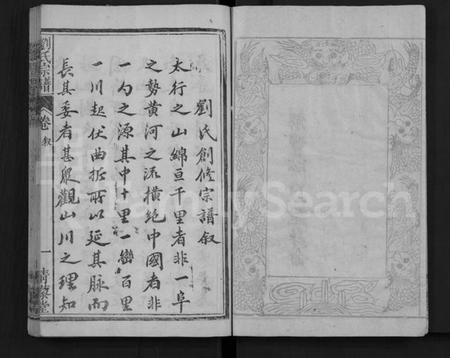 劉氏創修宗譜叙
太行之山綿亘千里者非一阜
之勢黄河之流横絶中國者非
一勺之源其中十里一巒百里
一川起伏曲折所以延其脉而
長其委者甚眾觀山川之理知
劉氏宗譜
卷
叙
一
青藜堂
FamilySearch